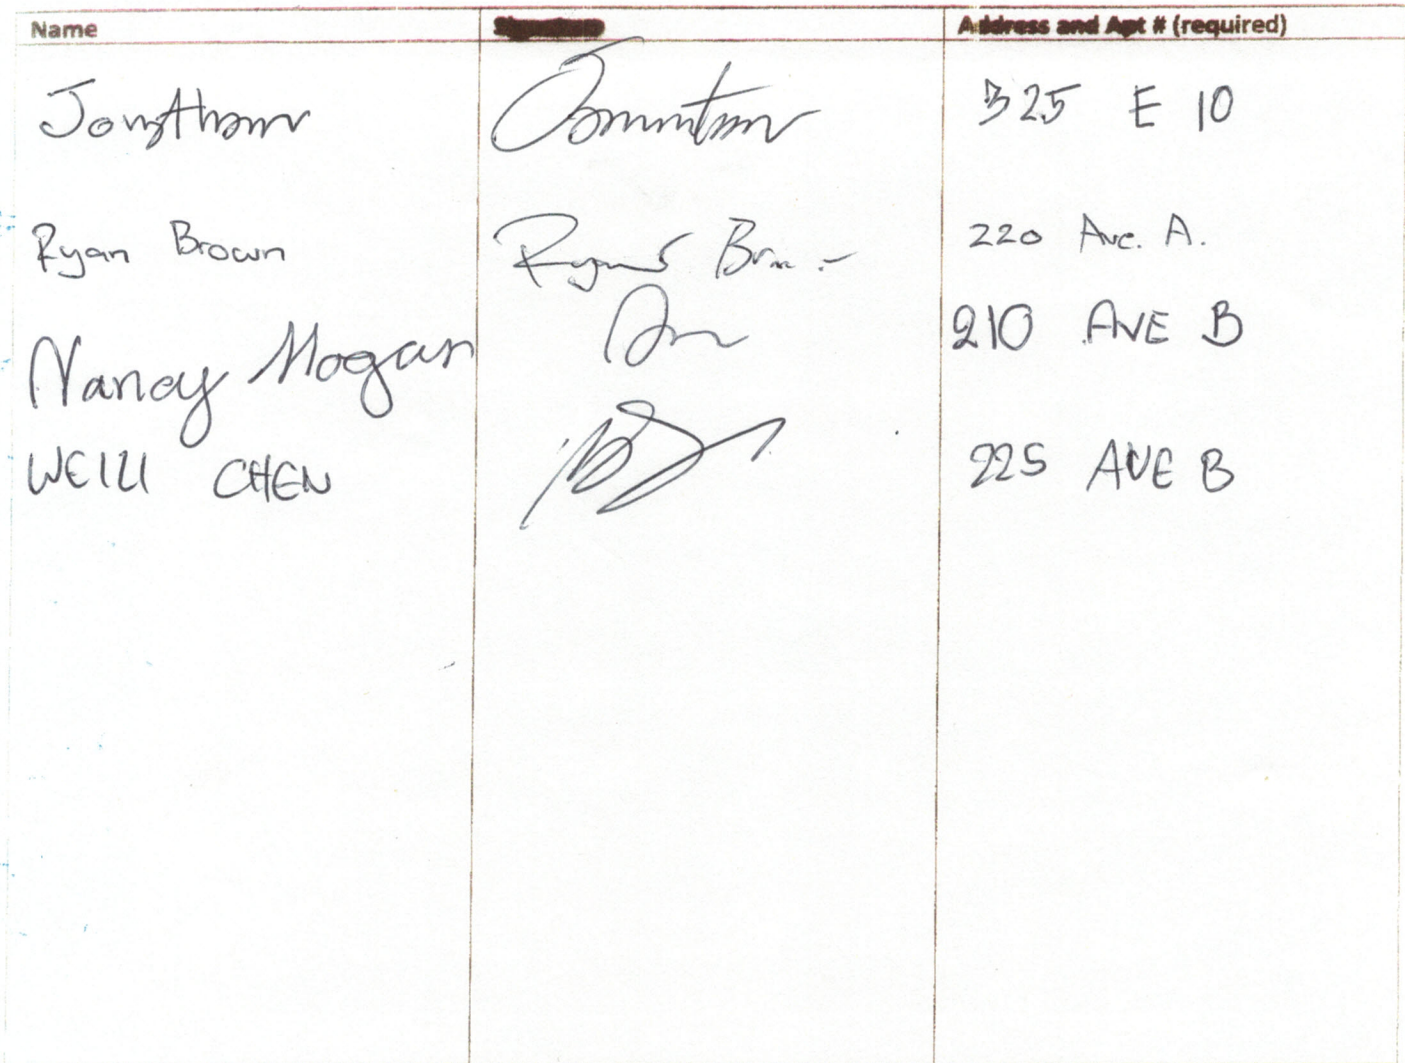 Name Address and Apt # (required)
Jonathan 325 E 10
Ryan Brown Ryan Brown 220 Ave. A.
Nancy Mogan 210 AVE B
WEILI CHEN 225 AVE B